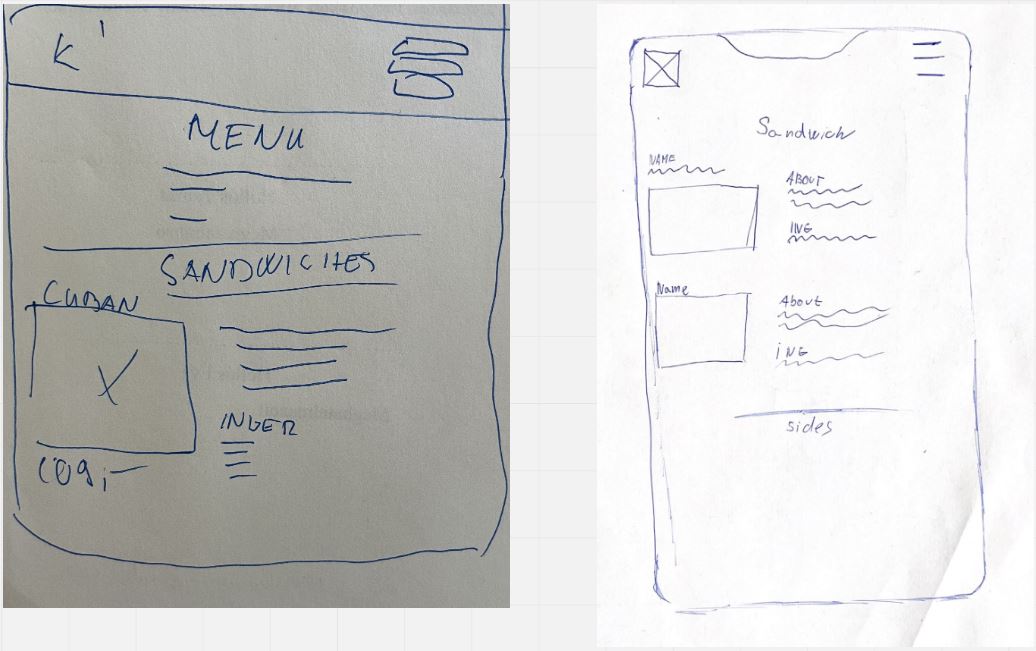 K
MENU
SANDWICHES
CUBAN
INGER
Sandwich
NAME
ABOUT
ING
Name
About
ING
sides